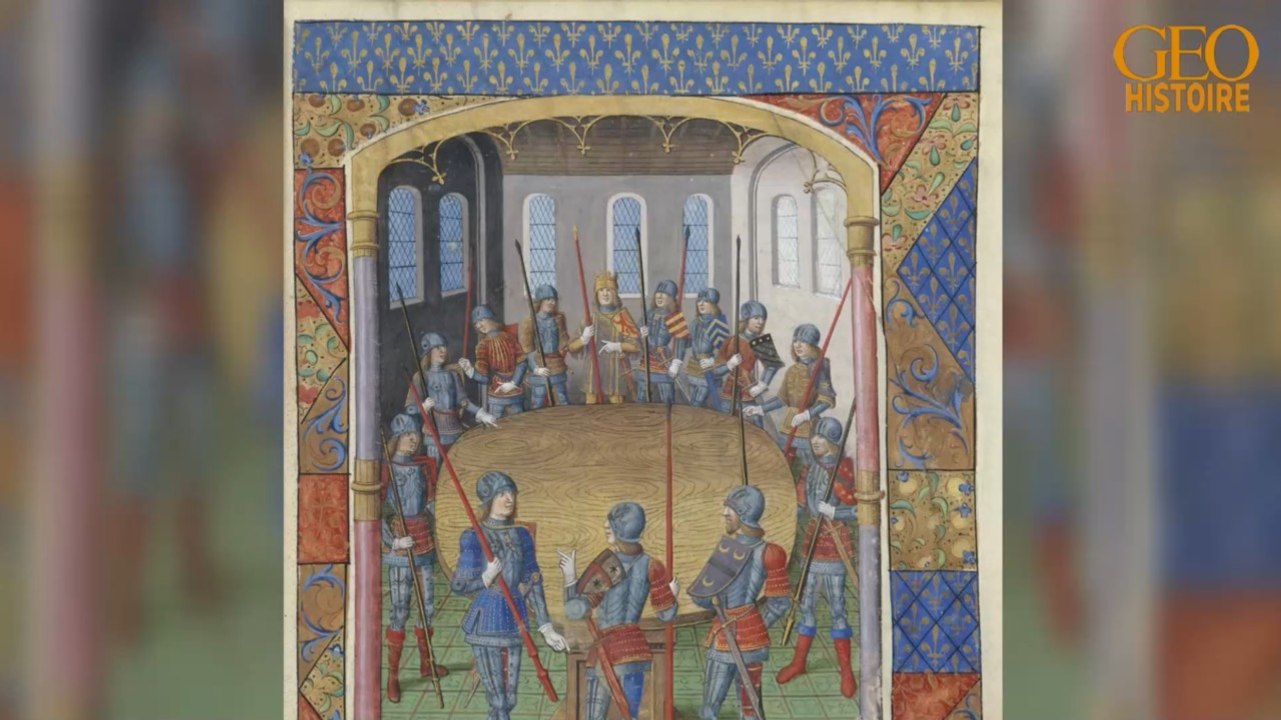 GEO
HISTOIRE